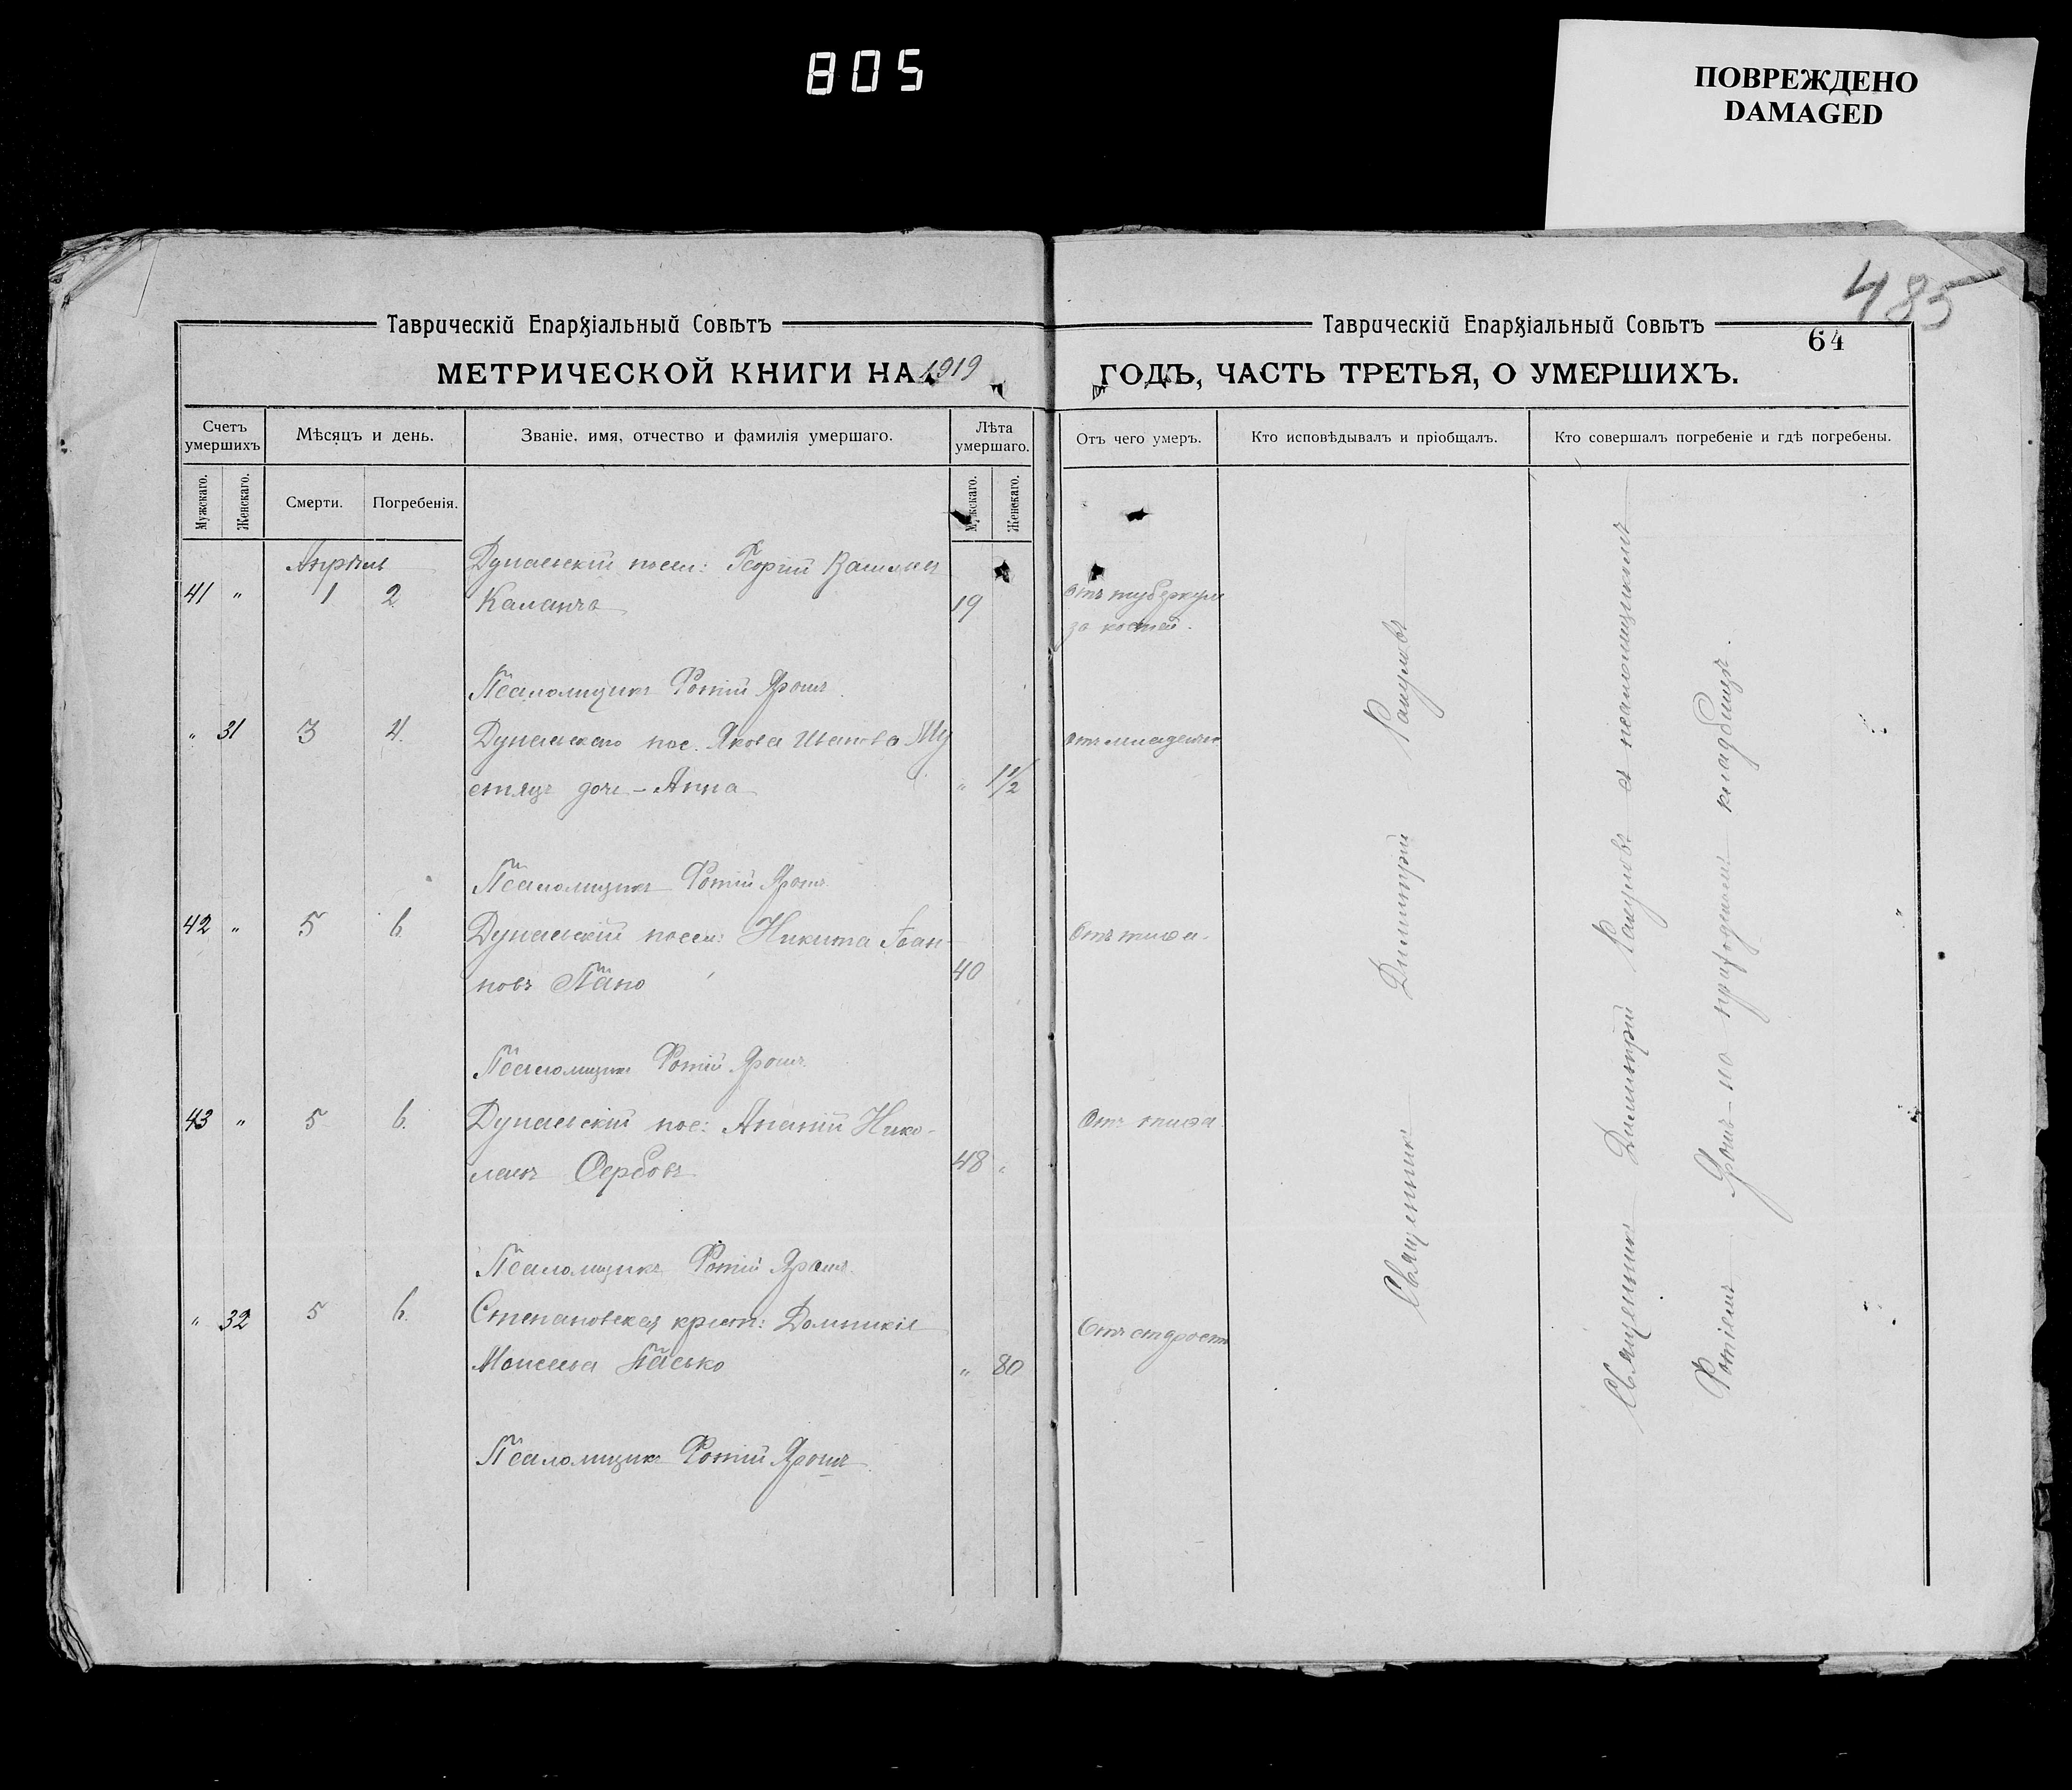 805
ПОВРЕЖДЕНО
DAMAGED
485
Таврическій Епархіальный Совѣтъ
Таврическій Епархіальный Совѣтъ
64
МЕТРИЧЕСКОЙ КНИГИ НА 1919
ГОДЪ, ЧАСТЬ ТРЕТЬЯ, О УМЕРШИХЪ.
Счетъ умершихъ
Мѣсяцъ и день.
Званіе, имя, отчество и фамилія умершаго.
Лѣта умершаго.
Отъ чего умеръ.
Кто исповѣдывалъ и пріобщалъ.
Кто совершалъ погребеніе и гдѣ погребены.
Мужскаго.
Женскаго.
Смерти.
Погребенія.
Мужскаго.
Женскаго.
Апрѣль
Дунаевскій посел: Георгій
41 " 1 2. Каланча 19 отъ туберкуле
за костей.
Псаломщикъ Фотій Ярошъ.
" 31 3 4. Дунаевскаго пос. Якова Иванова Шу отъ
стяцъ дочь - Анна " 1 1/2
Псаломщикъ Фотій Ярошъ.
42 " 5 6. Дунаевскій посел: Никита Іоан- Отъ тифа.
новъ 40
Псаломщикъ Фотій Ярошъ.
43 " 5 6. Дунаевскій пос: Ананій Нико- Отъ тифа.
лаевъ Сербовъ 48 "
Псаломщикъ Фотій Ярошъ.
" 32 5 6. Степановская крест: Домникія Отъ старости
Моисеева Пасько " 80
Псаломщикъ Фотій Ярошъ.
Священникъ Димитрій
Священникъ Димитрій съ псаломщикомъ
Фотіемъ Ярошъ на приходскомъ кладбищѣ.